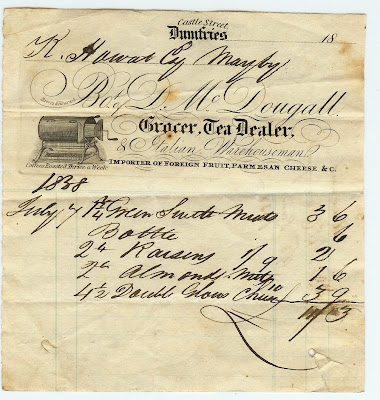 Castle Street,
Dumfries 18
K. Howat Esq Mayby
Bot. of D. McDougall.
Grocer, Tea Dealer,
& Italian Warehouseman.
Coffees Roasted Thrice a Week
IMPORTER OF FOREIGN FRUIT, PARMESAN CHEESE & C.
1838
July 7 Green 3 6
Bottle 6
2 Raisins 1/ 2
2 Almond 1 6
4½ Double Glows 3 9